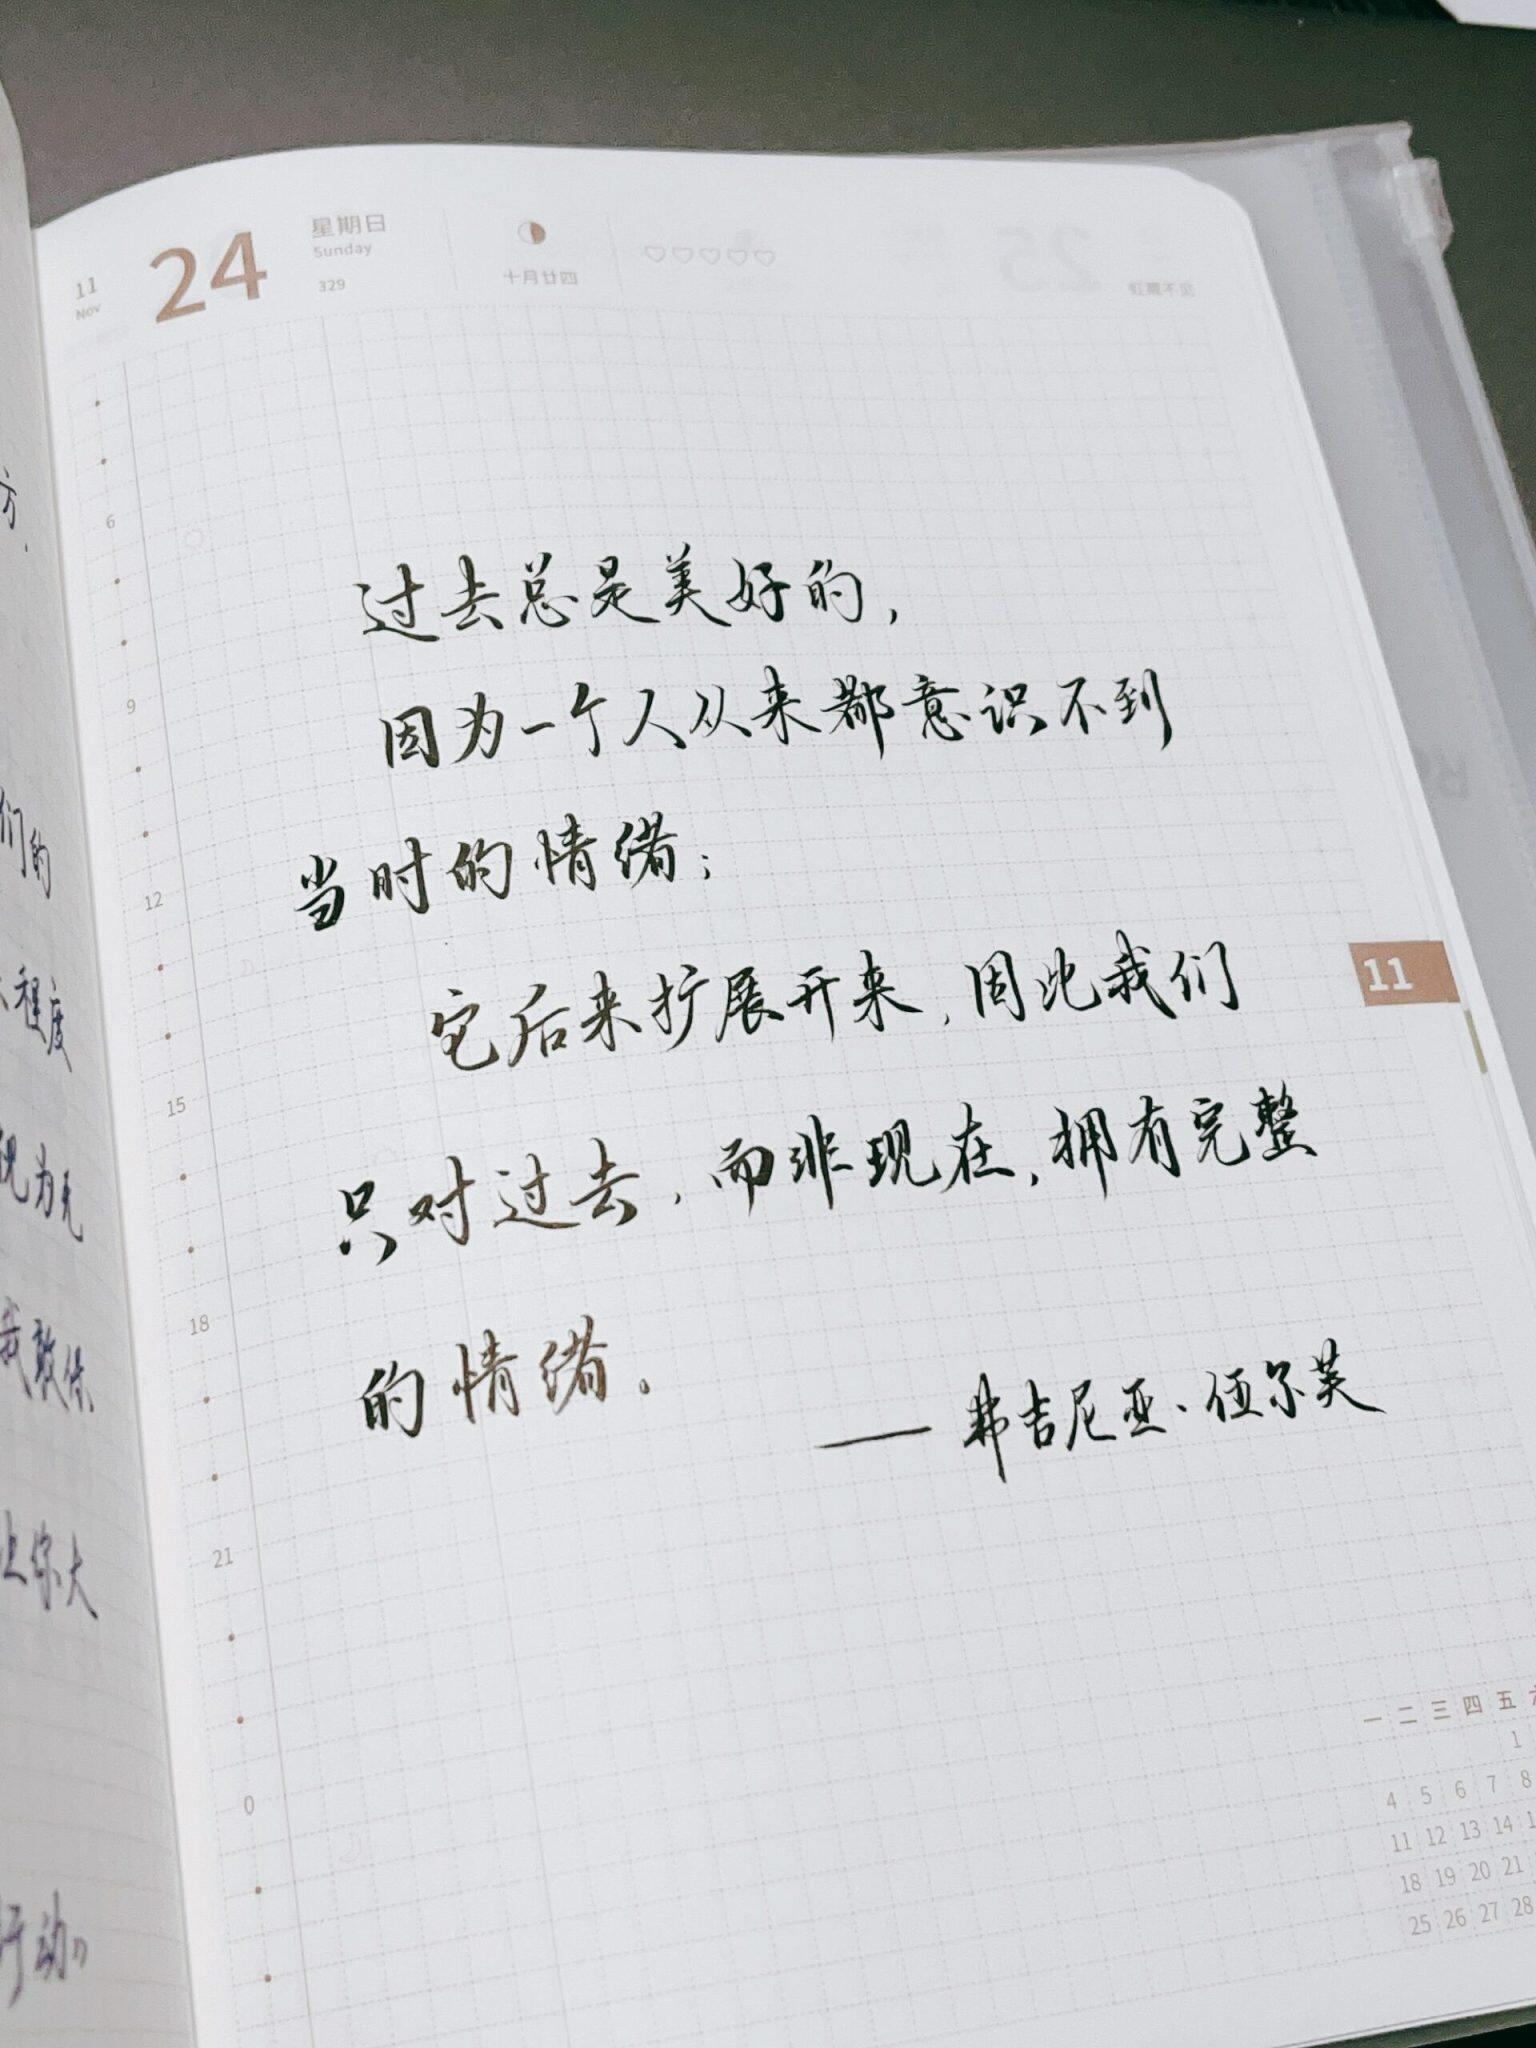 11
Nov
24
星期日
Sunday
329
十月廿四
过去总是美好的,
因为一个人从来都意识不到
当时的情绪;
它后来扩展开来,因此我们
只对过去,而非现在,拥有完整
的情绪.
——弗吉尼亚·伍尔芙
6
9
12
15
18
21
0
11
一 二 三 四 五
1
4 5 6 7 8
11 12 13 14
18 19 20 21
25 26 27 28
方.
们的
程度
视为无
我敢保
让你大
行动》